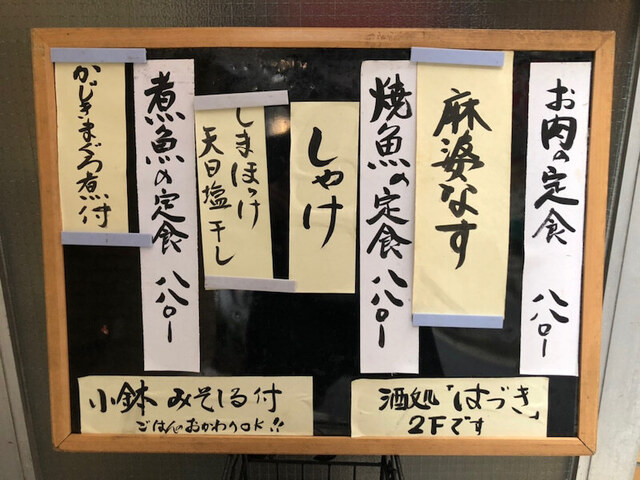 お肉の定食 八八〇ー
麻婆なす
焼魚の定食 八八〇ー
しゃけ
しまほっけ
天日塩干し
煮魚の定食 八八〇ー
かじきまぐろ煮付
小鉢 みそしる付
ごはんのおかわりOK!!
酒処「はづき」
2Fです